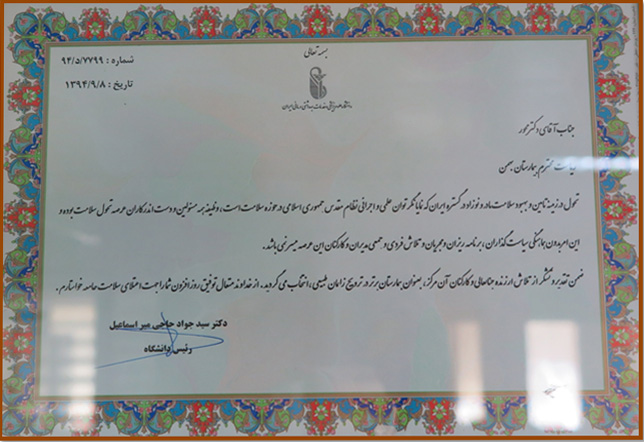 بسمه تعالی
شماره : ۹۴/۵/۷۷۹۹
تاریخ : ۱۳۹۴/۹/۸
دانشگاه علوم پزشکی و خدمات بهداشتی درمانی ایران
جناب آقای دکتر
ریاست محترم بیمارستان بهمن
تحول در زمینه تامین و بهبود سلامت مادر و نوزاد در گستره ایران که نمایانگر توان علمی و اجرائی نظام مقدس جمهوری اسلامی در حوزه سلامت است، وظیفه همه مسئولین و دست اندرکاران عرصه تحول سلامت بوده و
این امر بدون هماهنگی سیاست گذاران، برنامه ریزان و مجریان و تلاش فردی و جمعی مدیران و کارکنان این عرصه میسر نمی باشد.
ضمن تقدیر و تشکر از تلاش ارزنده جنابعالی و کارکنان آن مرکز، بعنوان بیمارستان برتر در ترویج زایمان طبیعی، انتخاب می گردید. از خداوند متعال توفیق روزافزون شما را جهت اعتلای سلامت جامعه خواستارم.
دکتر سید جواد حاجی میر اسماعیل
رئیس دانشگاه